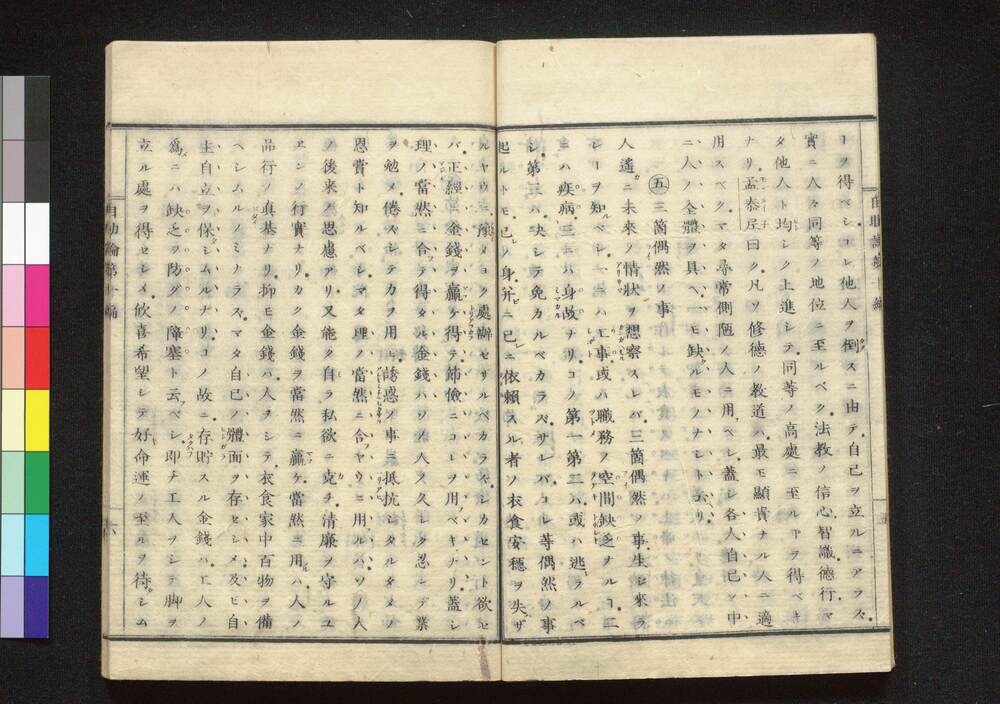 ーヲ得ベシコレ他人ヲ倒スニ由テ自己ヲ立ルニアラズ
實ニ人々同等ノ地位ニ至ルベク法教ノ信心智識德行マ
タ他人ト均シク上進シテ同等ノ高處ニ至ルヿヲ得ベキ
ナリ孟泰尼曰ク凡ソ修德ノ教道ハ最モ顯貴ナル人ニ適
用スベクマタ尋常側陋ノ人ニ用ベシ蓋シ各人自己ノ中
ニ人ノ全體ヲ具ヘ一モ缺ルモノナシト云リ
五 三箇偶然ノ事
人遙ニ未來ノ情狀ヲ想察スレバ三箇偶然ノ事生シ來ラ
ンーヲ知ルベシ一ニハ工事或ハ職務ノ空間缺乏ナルヿ二
ニハ疾病三ニハ身故ナリコノ第一第二ハ或ハ逃ラルベ
シ第三ハ決シテ免カルベカラズサレバコレ等偶然ノ事
起ルトモ已ノ身幷ニ己ニ依賴スル者ノ衣食安穩ヲ失ザ
ルヤウニ豫メヨク處辦セザルベカラズシカセント欲セ
バ正經ニ金錢ヲ贏ケ得テ節儉ニコレヲ用フベキナリ蓋シ
理ノ當然ニ合テ得タル金錢ハソノ人久シク忍シデ業
ヲ勉メ倦ズシテ力ヲ用ル誘惑ノ事ニ抵抗シタルタメノ
恩賞ト知ルベシマタ理ノ當然ニ合フヤウニ用ルハソノ人
ノ後來ノ思慮アリ又能ク自ラ私欲ニ克チ清廉ヲ守ルユ
ヱンノ行實ナリカク金錢ヲ當然ニ贏ケ當然ニ用ルハ人ノ
品行ノ眞基ナリ抑モ金錢ハ人ヲシテ衣食家中百物ヲ備
ヘシムルノミナラズマタ自己ノ體面ヲ存ヒシメ及ビ自
主自立ヲ保シムルナリコノ故ニ存貯スル金錢ハ工人ノ
爲ニハ缺乏ヲ防グノ障塞ト云ベシ即チ工人ヲシテ脚ヲ
立ル處ヲ得セシメ欣喜希望シテ好命運ノ至ルヲ待シム
自助論第十編